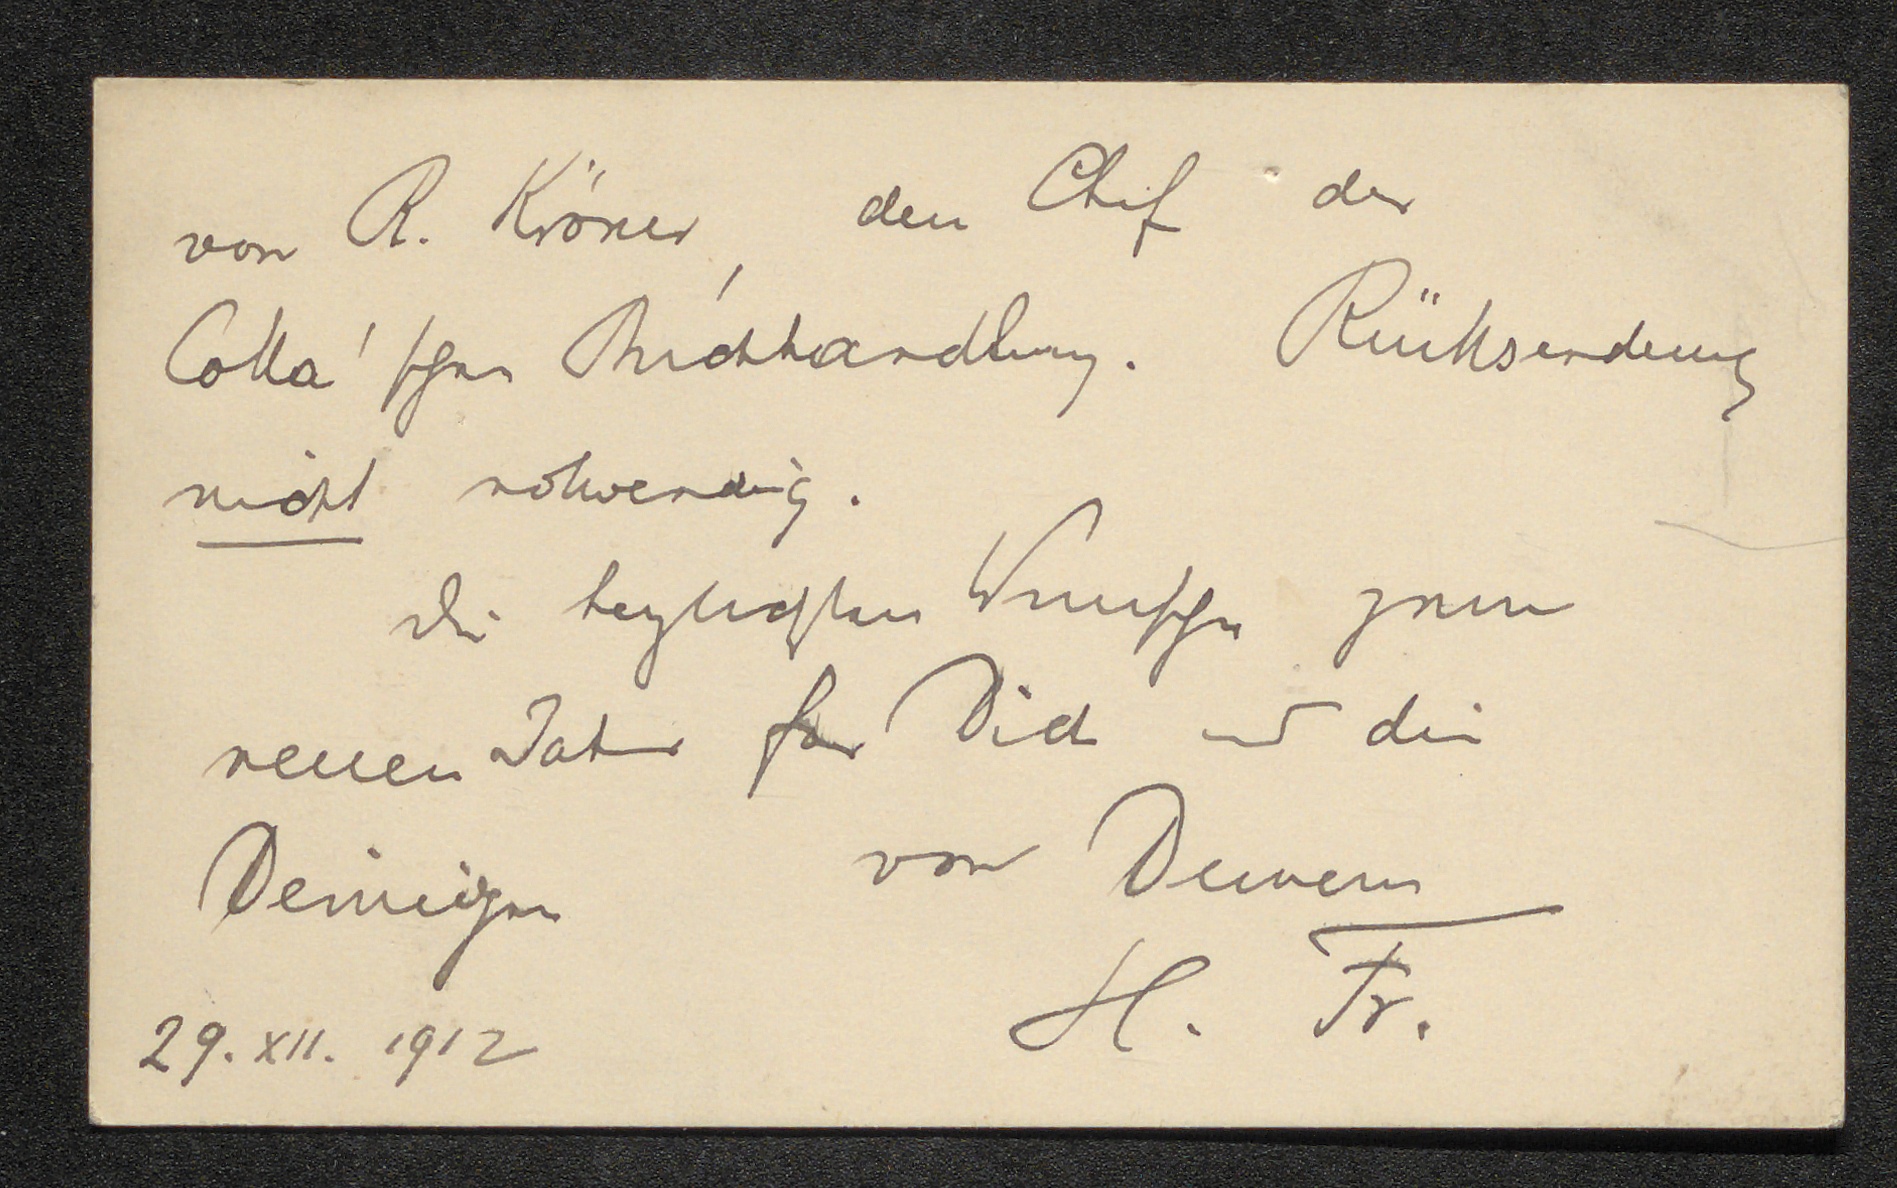 von R. Kröner, den Chef der
Cotta'schen Buchhandlung. Rücksendung
nicht notwendig.
Die herzlichsten Wünsche zum
neuen Jahr für Dich und die
Deinigen von Deinem
H. Fr.
29. XII. 1912